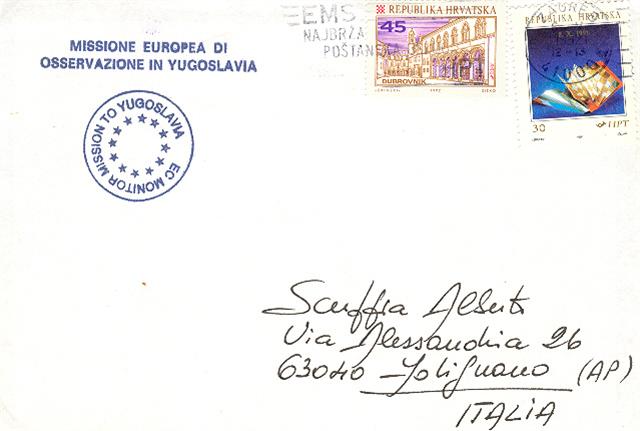 MISSIONE EUROPEA DI
OSSERVAZIONE IN YUGOSLAVIA
EC MONITOR MISSION TO YUGOSLAVIA
EMS
NAJBRŽA
POŠTANSKA
REPUBLIKA HRVATSKA
45
DUBROVNIK
1992
REPUBLIKA HRVATSKA
8. X. 1991
30
HPT
Via Alessandria 26
63040 Folignano (AP)
ITALIA